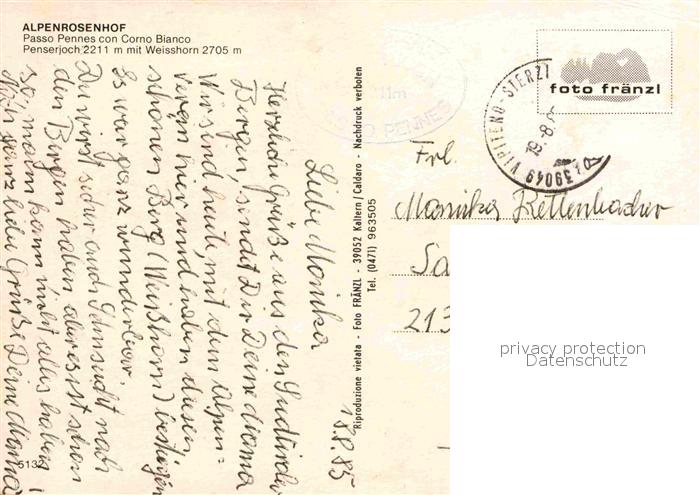 ALPENROSENHOF
Passo Pennes con Corno Bianco
Penserjoch 2211 m mit Weisshorn 2705 m
18.8.85
Liebe Monika
Herzliche Grüße aus den Südtiroler
Bergen, sendet Dir Deine Mama
Wir sind heute, mit dem Alpen=
verein hier und haben diesen
schönen Berg (Weißhorn) bestiegen
Es war ganz wunderbar.
Du wirst sicher auch Sehnsucht nach
den Bergen haben aber es ist schon
so, man kann nicht alles haben!
Noch ganz liebe Grüße Deine Mama
5132
Riproduzione vietata - Foto FRÄNZL - 39052 Kaltern/Caldaro - Nachdruck verboten
Tel. (0471) 963505
PENNES
foto fränzl
39049 VIPITENO-STERZI
Frl.
Monika Kettenbacher
Sa
213
privacy protection
Datenschutz